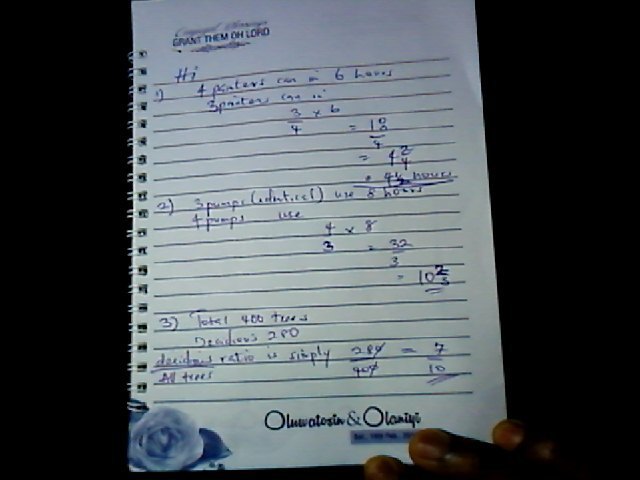 GRANT THEM OH LORD
Hi
1) 4 painters can in 6 hours
3 painters can in
3/4 × 6
= 18/4
= 4 2/4
= 4½ hours
2) 3 pumps (identical) use 8 hours
4 pumps use
4/3 × 8
= 32/3
= 10 2/3
3) Total 400 trees
Decidious 280
decidious ratio is simply 280/400 = 7/10
All trees
Oluwatosin & Olaniyi